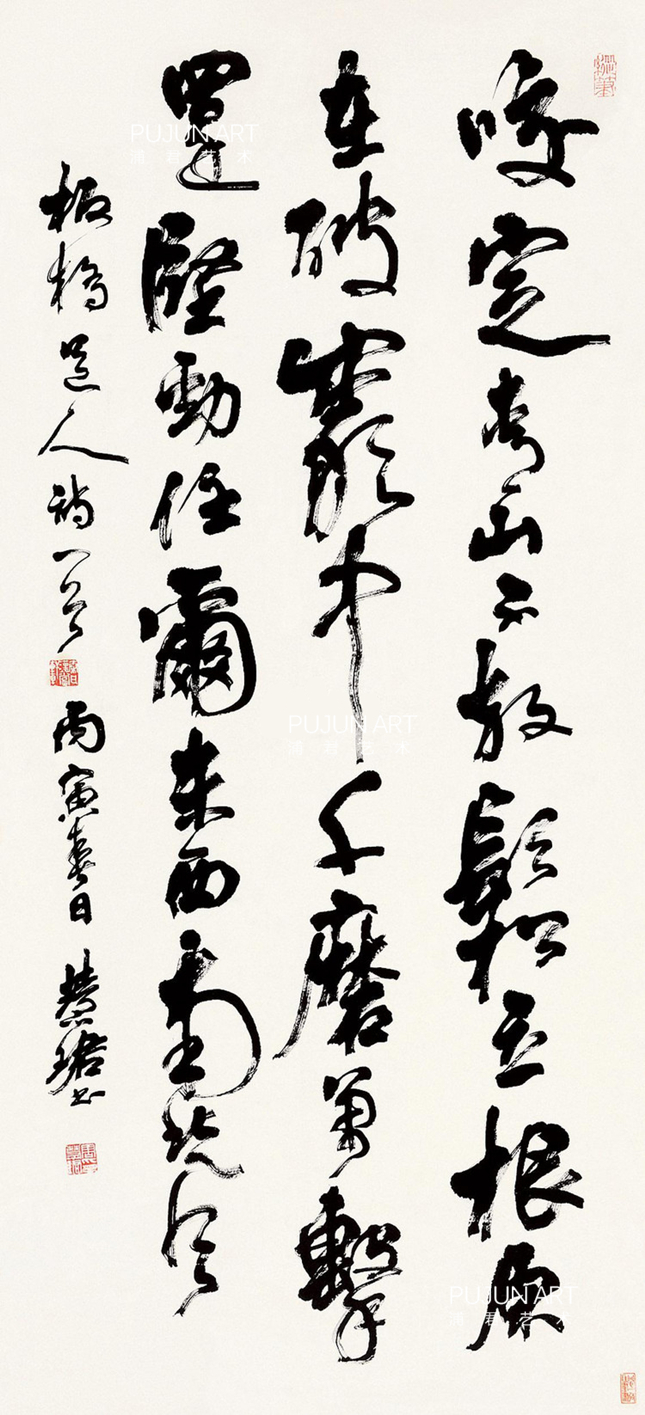 咬定青山不放鬆立根原
在破巖中千磨萬擊
還堅勁任爾東西南北風
板橋道人詩一首 丙寅春日 慧珺書
PUJUN ART
PUJUN ART
PUJUN ART